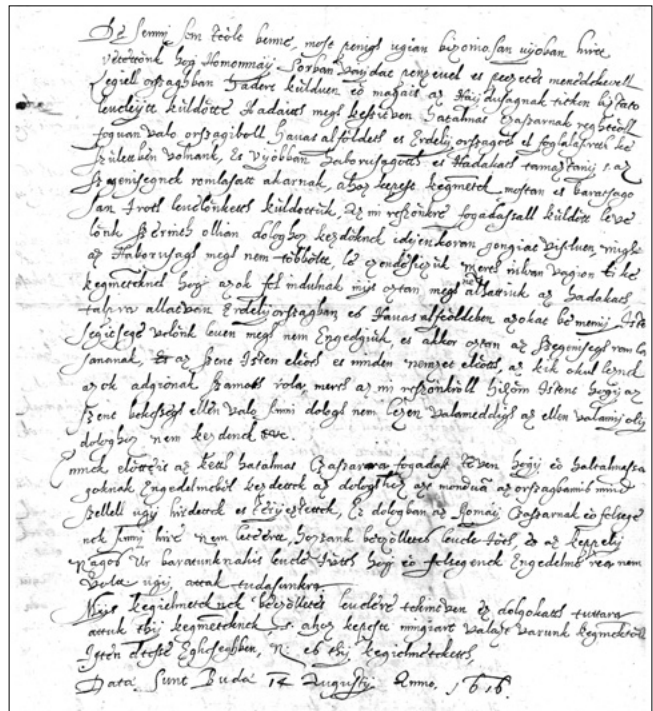 Ez semmj sem teöle benne, most penigh ugian bizoniosan uyoban hirt
vetettönk hog Homonnaÿ Sorban Vaydae penzeuel es feyzetes menedekeuell
Legiell orszaghban hadert külduen eö magais az Haydusagnak titken biztato
leueleytt küldötte Hadaitt megh keszituen hatalmas Czaszarnak reghtöll
foguan valo orszagiboll Hauas alföldett es Erdely orszagott el foglalasert ke
születben volnank, Es vyobban haborusagott es Hadakatt tamaztanÿ s az
szegenisegnek romlasatt akarnak, ahoz kepest kegmetek mostan es baratsago
san irott leuelönkett küldöttük, Az mi reszönkre fogadassall küldött leue
lönk szerent ollian dologhoz kezdöknek idejenkoran gongiat viseluen, miglen
az Haborusagh megh nem többölt le czendesiczük mert nilван vagion ti ke
kegmeteknel hog azok fel indulnak mys oztan megh allattiuk az hadakatt
talpra allatuen Erdelyorszagban es Hauas alföldeben azokat be mennÿ Iste
segitsege velönk leuen megh nem Engedgiük, es akkor oztan az szegenisegh rom la
sananak, az szent Isten elöt es minden nemzet elött, az kik okul lesznek
azok adgionak szamott rola, mert az mi reszönkröll hiszöm Istent hogÿ az
szent bekessegh ellen valo semmi dologh nem leszen valameddigh az ellen valamÿ olÿ
dologhoz nem kezdenek etc.
Ennek elötte is az kett hatalmas Czaszar fogadast teuen hogÿ eö hatalmassa
goknak Engedelmeböl kezdettek az dologhoz azt monduan az orszagbanis mind
szellell ugÿ hirdettek es terjeztettek, Ez dologban az Romaÿ Czaszarnak eö felsege
nek semmi hire nem leuen, hozzank böczölletes leuele iött, es az keppelÿ
Nagos Ur baratunknakis leuele iött hogÿ eö felsegenek Engedelme rea nem
volt ugÿ attak tudasunkra.
Mys kegielmeteknek böczölletes leuelere tekintuen ez dolgokatt tuttara
attuk thÿ kegmeteknek, s ahoz kepest mingiart valazt varunk kegmektöl
Isten eltesse Eghesseghben, es thÿ kegielmetekett,
Data sunt Buda 14 Augustÿ Anno, 1616.